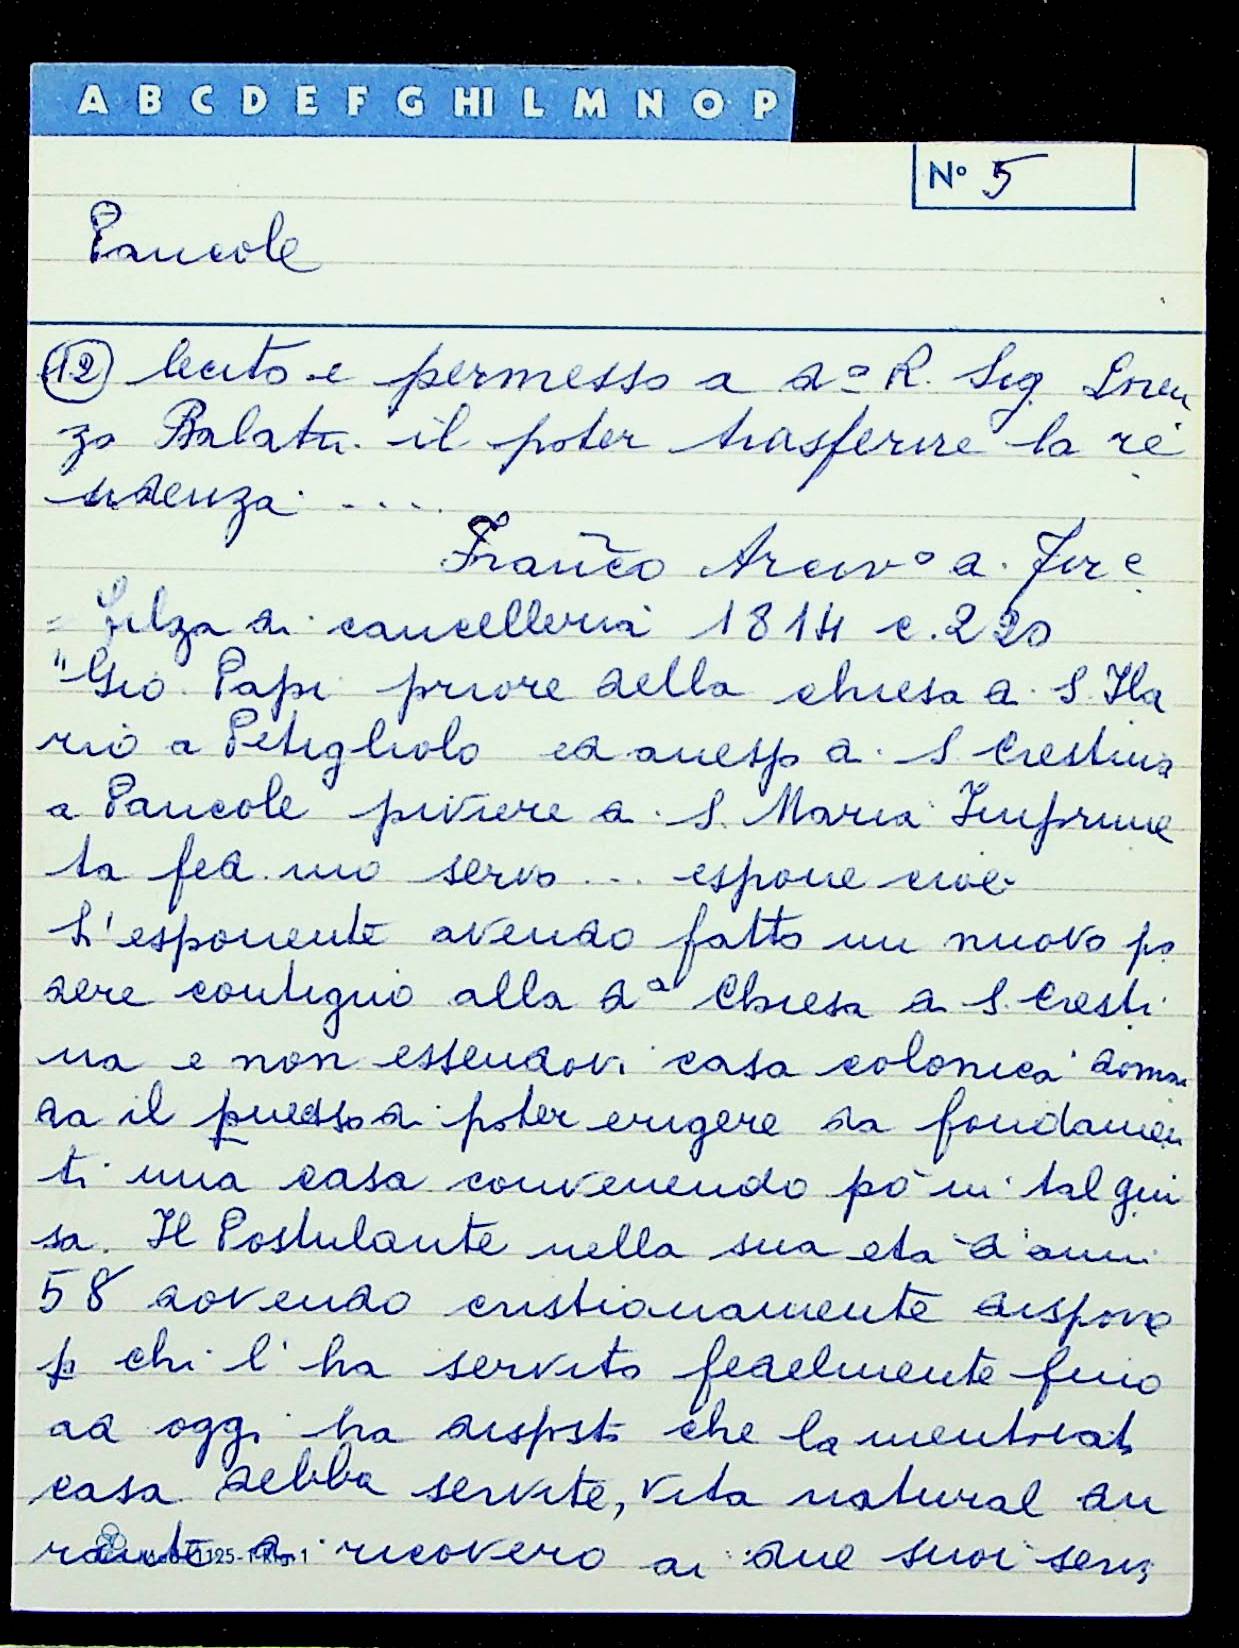 A B C D E F G HI L M N O P
N° 5
Pancole
(12) lecito e permesso a dº R. Sig. Loren
zo Balatri il poter trasferire la re
sidenza ....
Franco Arcivº di Fire
= filza di cancelleria 1814 c. 220
"Gio. Papi priore della chiesa di S. Ila
rio a Petigliolo ed annesso di S. Crestina
a Pancole piviere di S. Maria Imprune
ta fed.mo servo ... espone cioè
L'esponente avendo fatto un nuovo po
dere contiguo alla dª Chiesa di S. Cresti
na e non essendovi casa colonica doman
da il permesso di poter erigere da fondamen
ti una casa convenendo pò in tal gui
sa. Il Postulante nella sua età d'anni
58 dovendo cristianamente disporre
p chi l'ha servito fedelmente fino
ad oggi ha disposto che la mentovata
casa debba servire, vita natural du
rante di ricovero ai due suoi servi